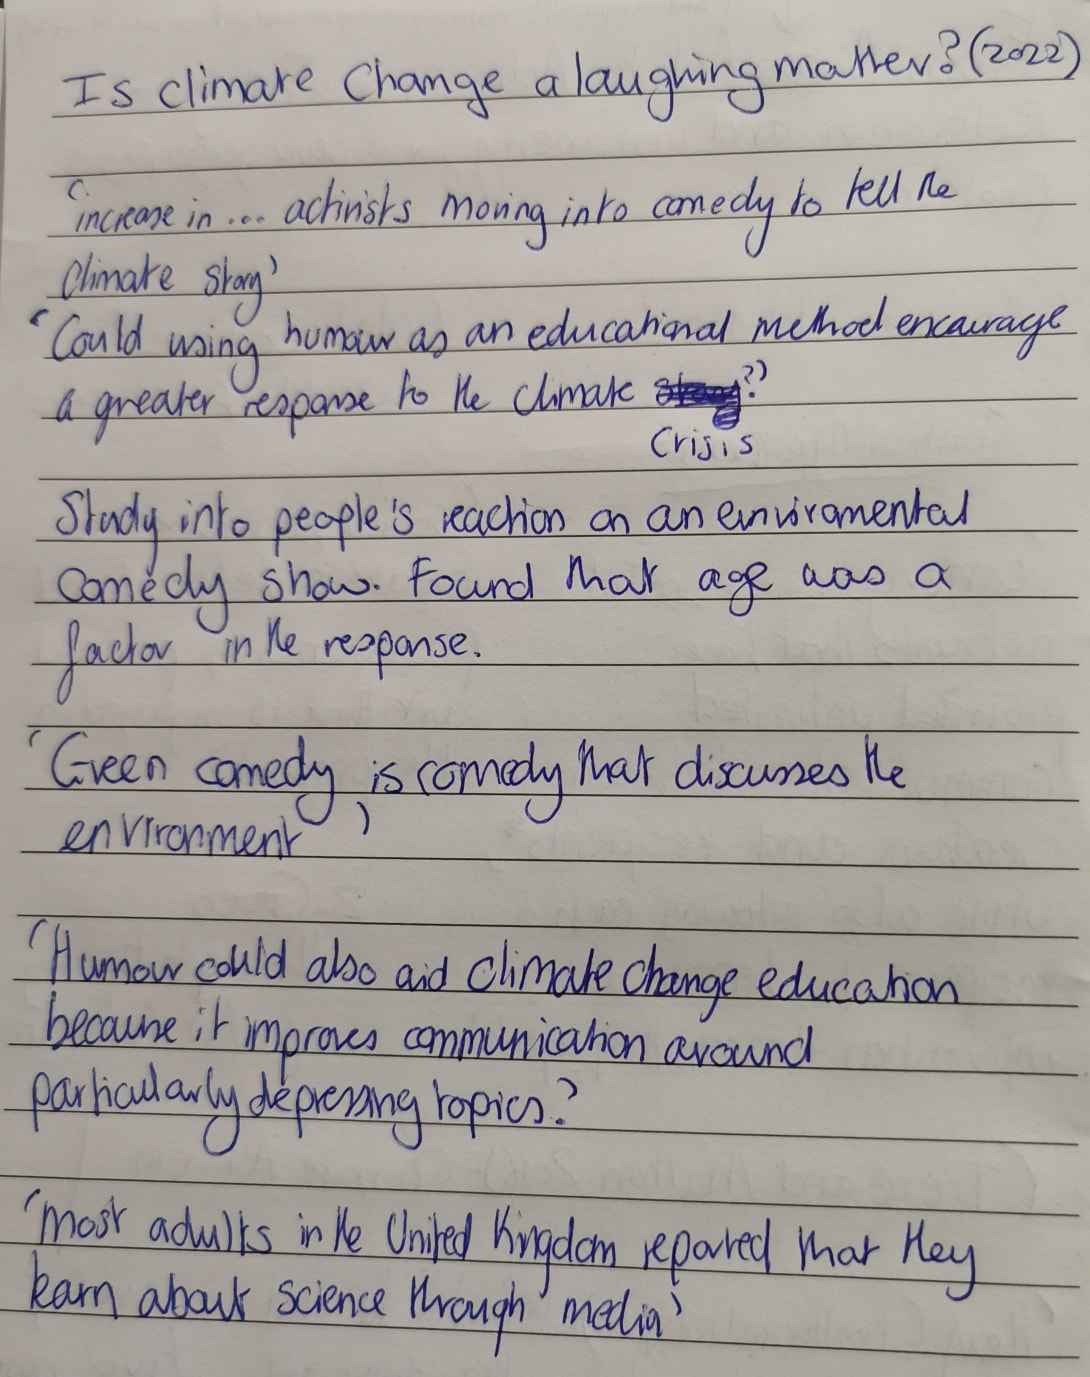 Is climate change a laughing matter? (2022)
'increase in... activists moving into comedy to tell the
climate story'
'Could using humour as an educational method encourage
a greater response to the climate ?'
Crisis
Study into people's reaction on an enviromental
comedy show. Found that age was a
factor in the response.
'Green comedy is comedy that discusses the
environment'
'Humour could also aid climate change education
because it improves communication around
particularly depressing topics.'
'most adults in the United Kingdom reported that they
learn about science through media'